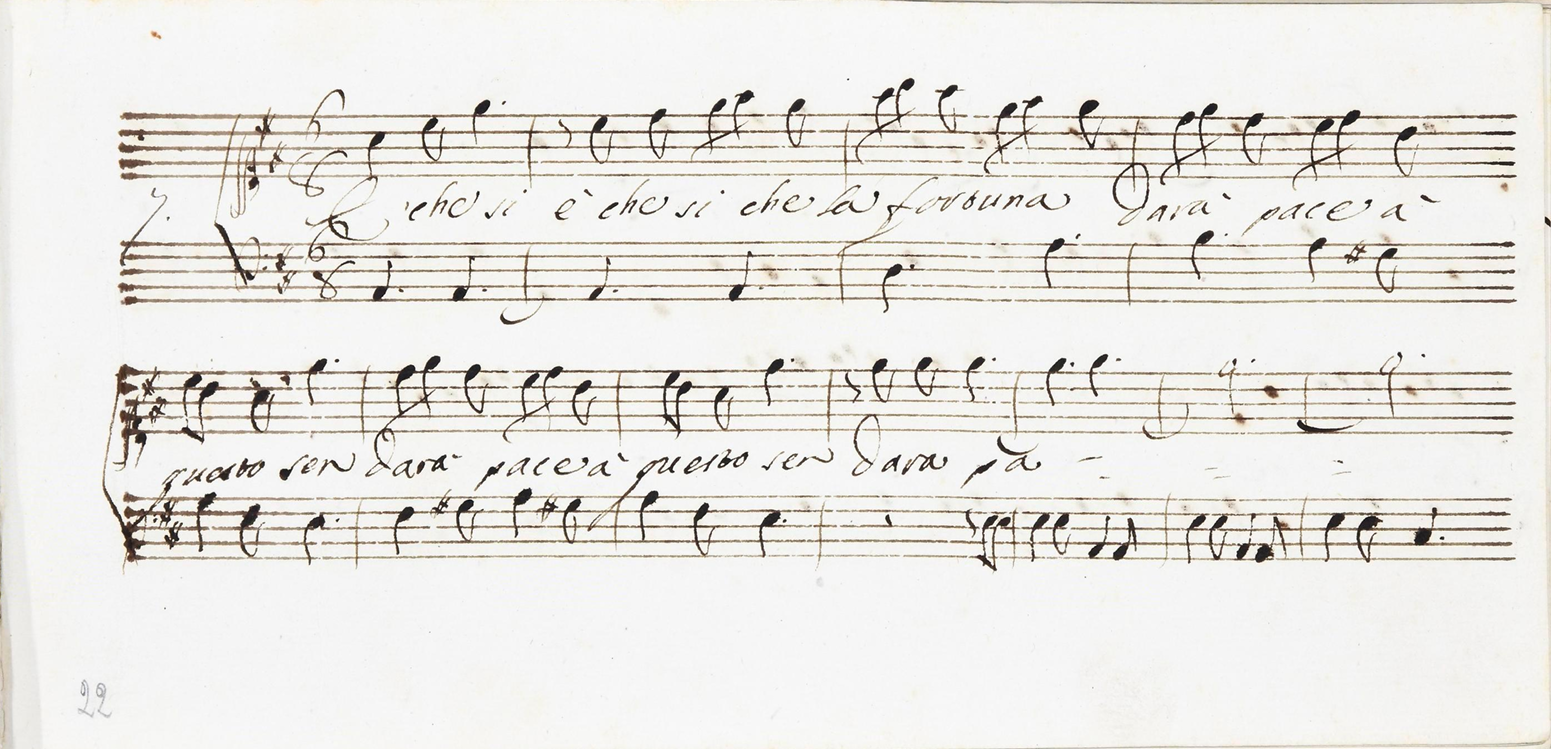 7.
6 8
E' che si è che si che la fortuna Darà pace à
6 8
questo sen Darà pace à questo sen Dara pa - - -
22